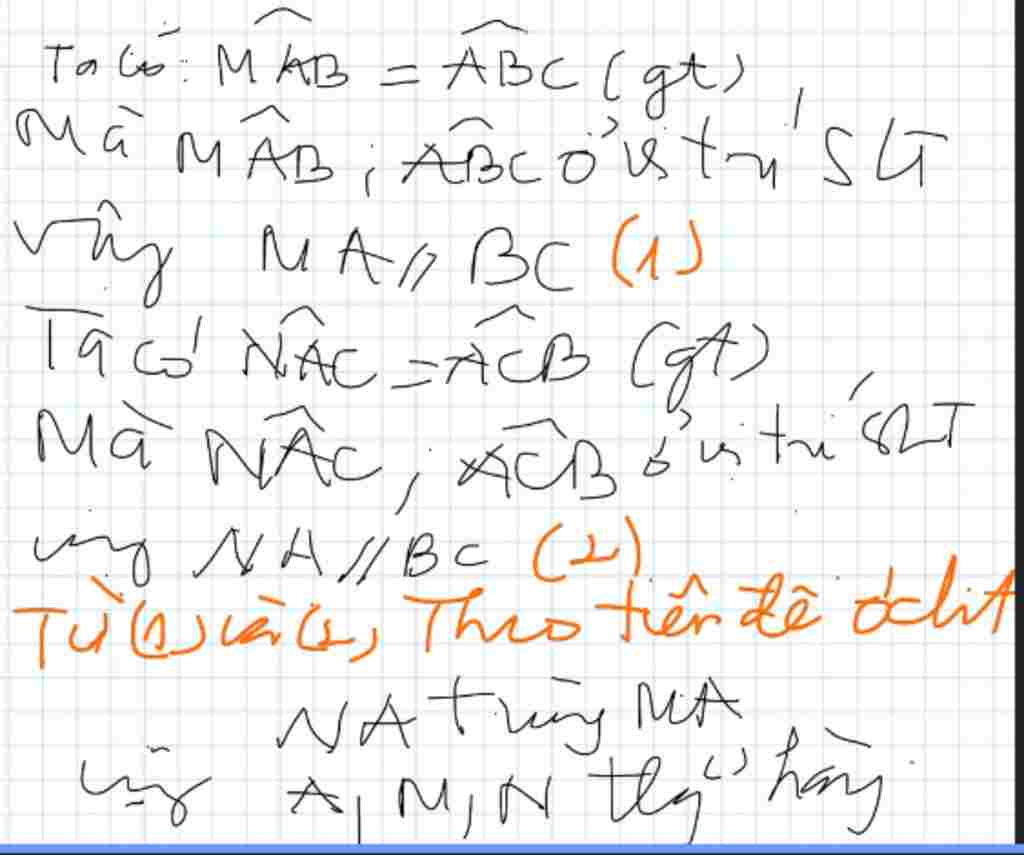 Ta có: MÂB = AB̂C (gt)
Mà MÂB; AB̂C ở vị trí SLT
vậy MA // BC (1)
Ta có NÂC = AĈB (gt)
Mà NÂC, AĈB ở vị trí SLT
vậy NA // BC (2)
Từ (1) và (2), Theo tiên đề Ơclit
NA trùng MA
vậy A, M, N thẳng hàng